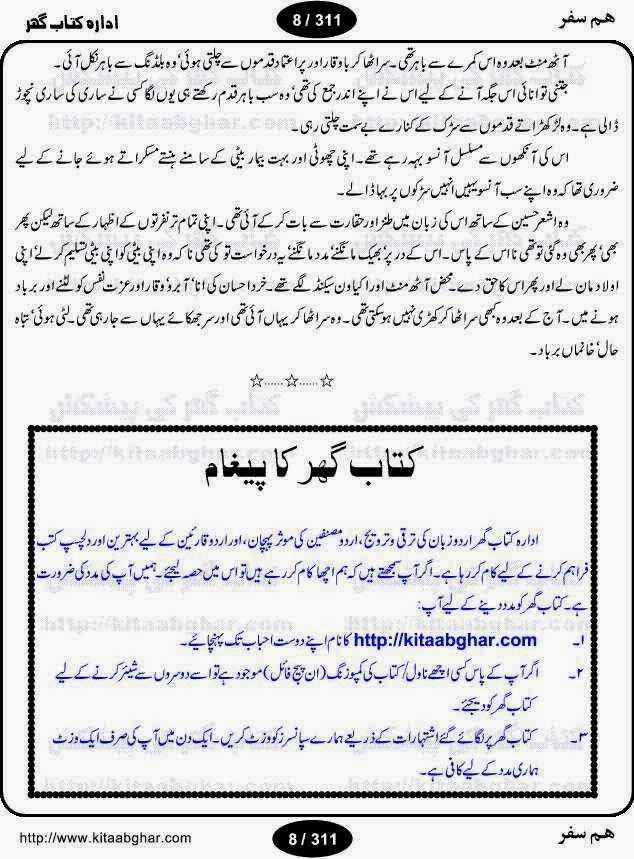 ہم سفر
8 / 311
ادارہ کتاب گھر
آٹھ منٹ بعد وہ اس کمرے سے باہر تھی۔ سر اٹھا کر باوقار اور پر اعتماد قدموں سے چلتی ہوئی وہ بلڈنگ سے باہر نکل آئی۔
جتنی توانائی اس جگہ آنے کے لیے اس نے اپنے اندر جمع کی تھی، وہ سب باہر قدم رکھتے ہی یوں لگا کسی نے ساری کی ساری نچوڑ
ڈالی ہے۔ وہ لڑکھڑاتے قدموں سے سڑک کے کنارے بے سمت چلتی رہی۔
اس کی آنکھوں سے مسلسل آنسو بہہ رہے تھے۔ اپنی چھوٹی اور بہت بیمار بیٹی کے سامنے ہنستے مسکراتے ہوئے جانے کے لیے
ضروری تھا کہ وہ اپنے سب آنسو یہیں انہیں سڑکوں پر بہا ڈالے۔
وہ اشعر حسین کے ساتھ اس کی زبان میں طنز اور حقارت سے بات کر کے آئی تھی۔ اپنی تمام تر نفرتوں کے اظہار کے ساتھ لیکن پھر
بھی، پھر بھی وہ گئی تو تھی نا اس کے پاس۔ اس کے در پر، بھیک مانگنے، مدد مانگنے، یہ درخواست تو کی تھی نا کہ وہ اپنی بیٹی کو اپنی بیٹی تسلیم کر لے، اپنی
اولاد مان لے اور پھر اس کا حق دے۔ محض آٹھ منٹ اور اکیاون سیکنڈ لگے تھے۔ خرد احسان کی انا، آبرو، وقار اور عزت نفس کو لٹنے اور برباد
ہونے میں۔ آج کے بعد وہ کبھی سر اٹھا کر کھڑی نہیں ہو سکتی تھی۔ وہ سر اٹھا کر یہاں آئی تھی اور سر جھکائے یہاں سے جا رہی تھی۔ لٹی ہوئی، تباہ
حال، خانماں برباد۔
☆......☆......☆
کتاب گھر کا پیغام
ادارہ کتاب گھر اردو زبان کی ترقی و ترویج، اردو مصنفین کی موثر پہچان، اور اردو قارئین کے لیے بہترین اور دلچسپ کتب
فراہم کرنے کے لیے کام کر رہا ہے۔ اگر آپ سمجھتے ہیں کہ ہم اچھا کام کر رہے ہیں تو اس میں حصہ لیجئے۔ ہمیں آپ کی مدد کی ضرورت
ہے۔ کتاب گھر کو مدد دینے کے لیے آپ:
۱۔ http://kitaabghar.com کا نام اپنے دوست احباب تک پہنچائیے۔
۲۔ اگر آپ کے پاس کسی اچھے ناول/کتاب کی کمپوزنگ (ان پیج فائل) موجود ہے تو اسے دوسروں سے شیئر کرنے کے لیے
کتاب گھر کو دیجئے۔
۳۔ کتاب گھر پر لگائے گئے اشتہارات کے ذریعے ہمارے سپانسرز کو وزٹ کریں۔ ایک دن میں آپ کی صرف ایک وزٹ
ہماری مدد کے لیے کافی ہے۔
ہم سفر
8 / 311
http://www.kitaabghar.com